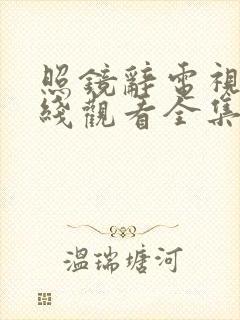 照鏡辭電視
綫觀看全集
溫瑞塘河